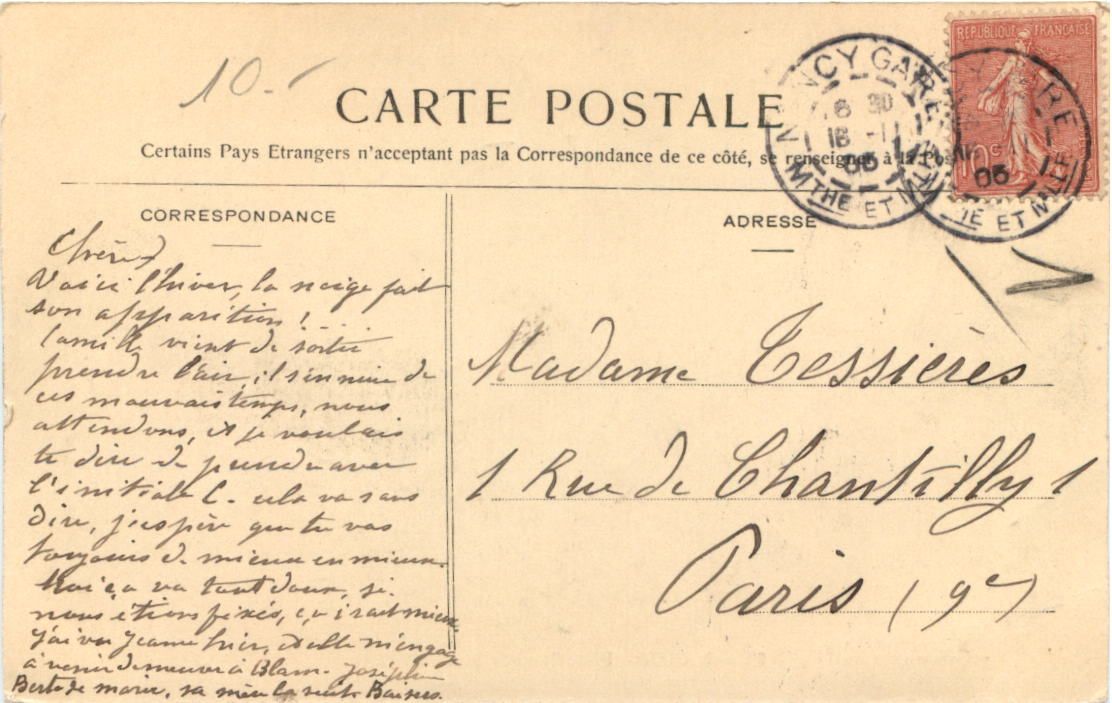 10.-
CARTE POSTALE
Certains Pays Etrangers n'acceptant pas la Correspondance de ce côté, se renseigner à la Pos
REPUBLIQUE FRANÇAISE
10c
NANCY GARE
8 30
18 -11
05
MTHE ET MLLE
GARE
05
ET MLLE
CORRESPONDANCE
ADRESSE
Voici l'hiver, la neige fait
son apparition !
Camille vient de sortir
prendre l'air, il s'ennuie de
ces mauvais temps, nous
attendons, et je voulais
te dire de prendre avec
l'initiale C. cela va sans
dire, j'espère que tu vas
toujours de mieux en mieux.
Moi ça va tout doux, si
nous étions fixés, ça irait mieux
J'ai vu Jeanne hier, elle m'engage
à venir demeurer à Blam. Joséphin
de marier, sa mère la suit. Baisers.
Madame Tessières
1 Rue de Chantilly 1
Paris (9e)